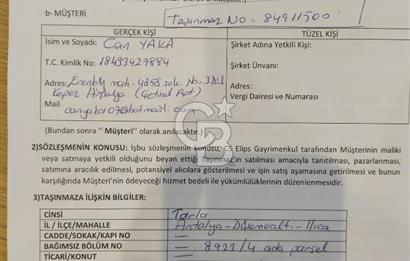 b- MÜŞTERİ
Taşınmaz No: 84911500
GERÇEK KİŞİ
TÜZEL KİŞİ
İsim ve Soyadı: Can YAKA
Şirket Adına Yetkili Kişi:
T.C. Kimlik No: 18493427884
Şirket Ünvanı:
Adres: mah. sok. No:
Kepez Antalya Apt)
Adres:
Mail
Vergi Dairesi ve Numarası
(Bundan sonra '' Müşteri'' olarak anılacaktır.)
2)SÖZLEŞMENİN KONUSU: İşbu sözleşmenin konusu, Elips Gayrimenkul tarafından Müşterinin maliki
veya satmaya yetkili olduğunu beyan ettiği Taşınmazın satılması amacıyla tanıtılması, pazarlanması,
satımına aracılık edilmesi, potansiyel alıcılara gösterilmesi ve işin satış aşamasına getirilmesi ve bunun
karşılığında Müşteri'nin ödeyeceği hizmet bedeli ile yükümlülüklerinin düzenlenmesidir.
3)TAŞINMAZA İLİŞKİN BİLGİLER:
CİNSİ Tarla
İL / İLÇE/MAHALLE Antalya-Döşemealtı-Ilıca
CADDE/SOKAK/KAPI NO —
BAĞIMSIZ BÖLÜM NO — 8922/4 ada parsel
TİCARİ/KONUT